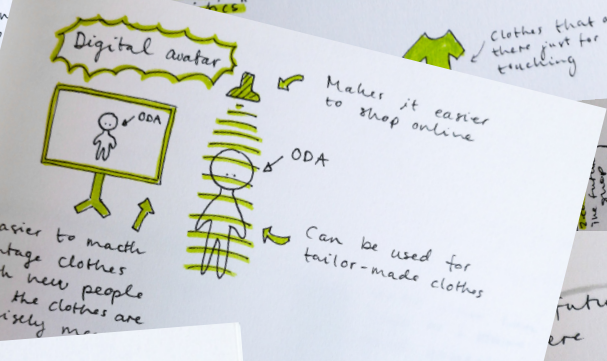 Digital avatar
ODA
Makes it easier
to shop online
ODA
Can be used for
tailor-made clothes
asier to macth
ntage clothes
h new people
the clothes are
isely
Clothes that
there just for
touching
the shop
ere